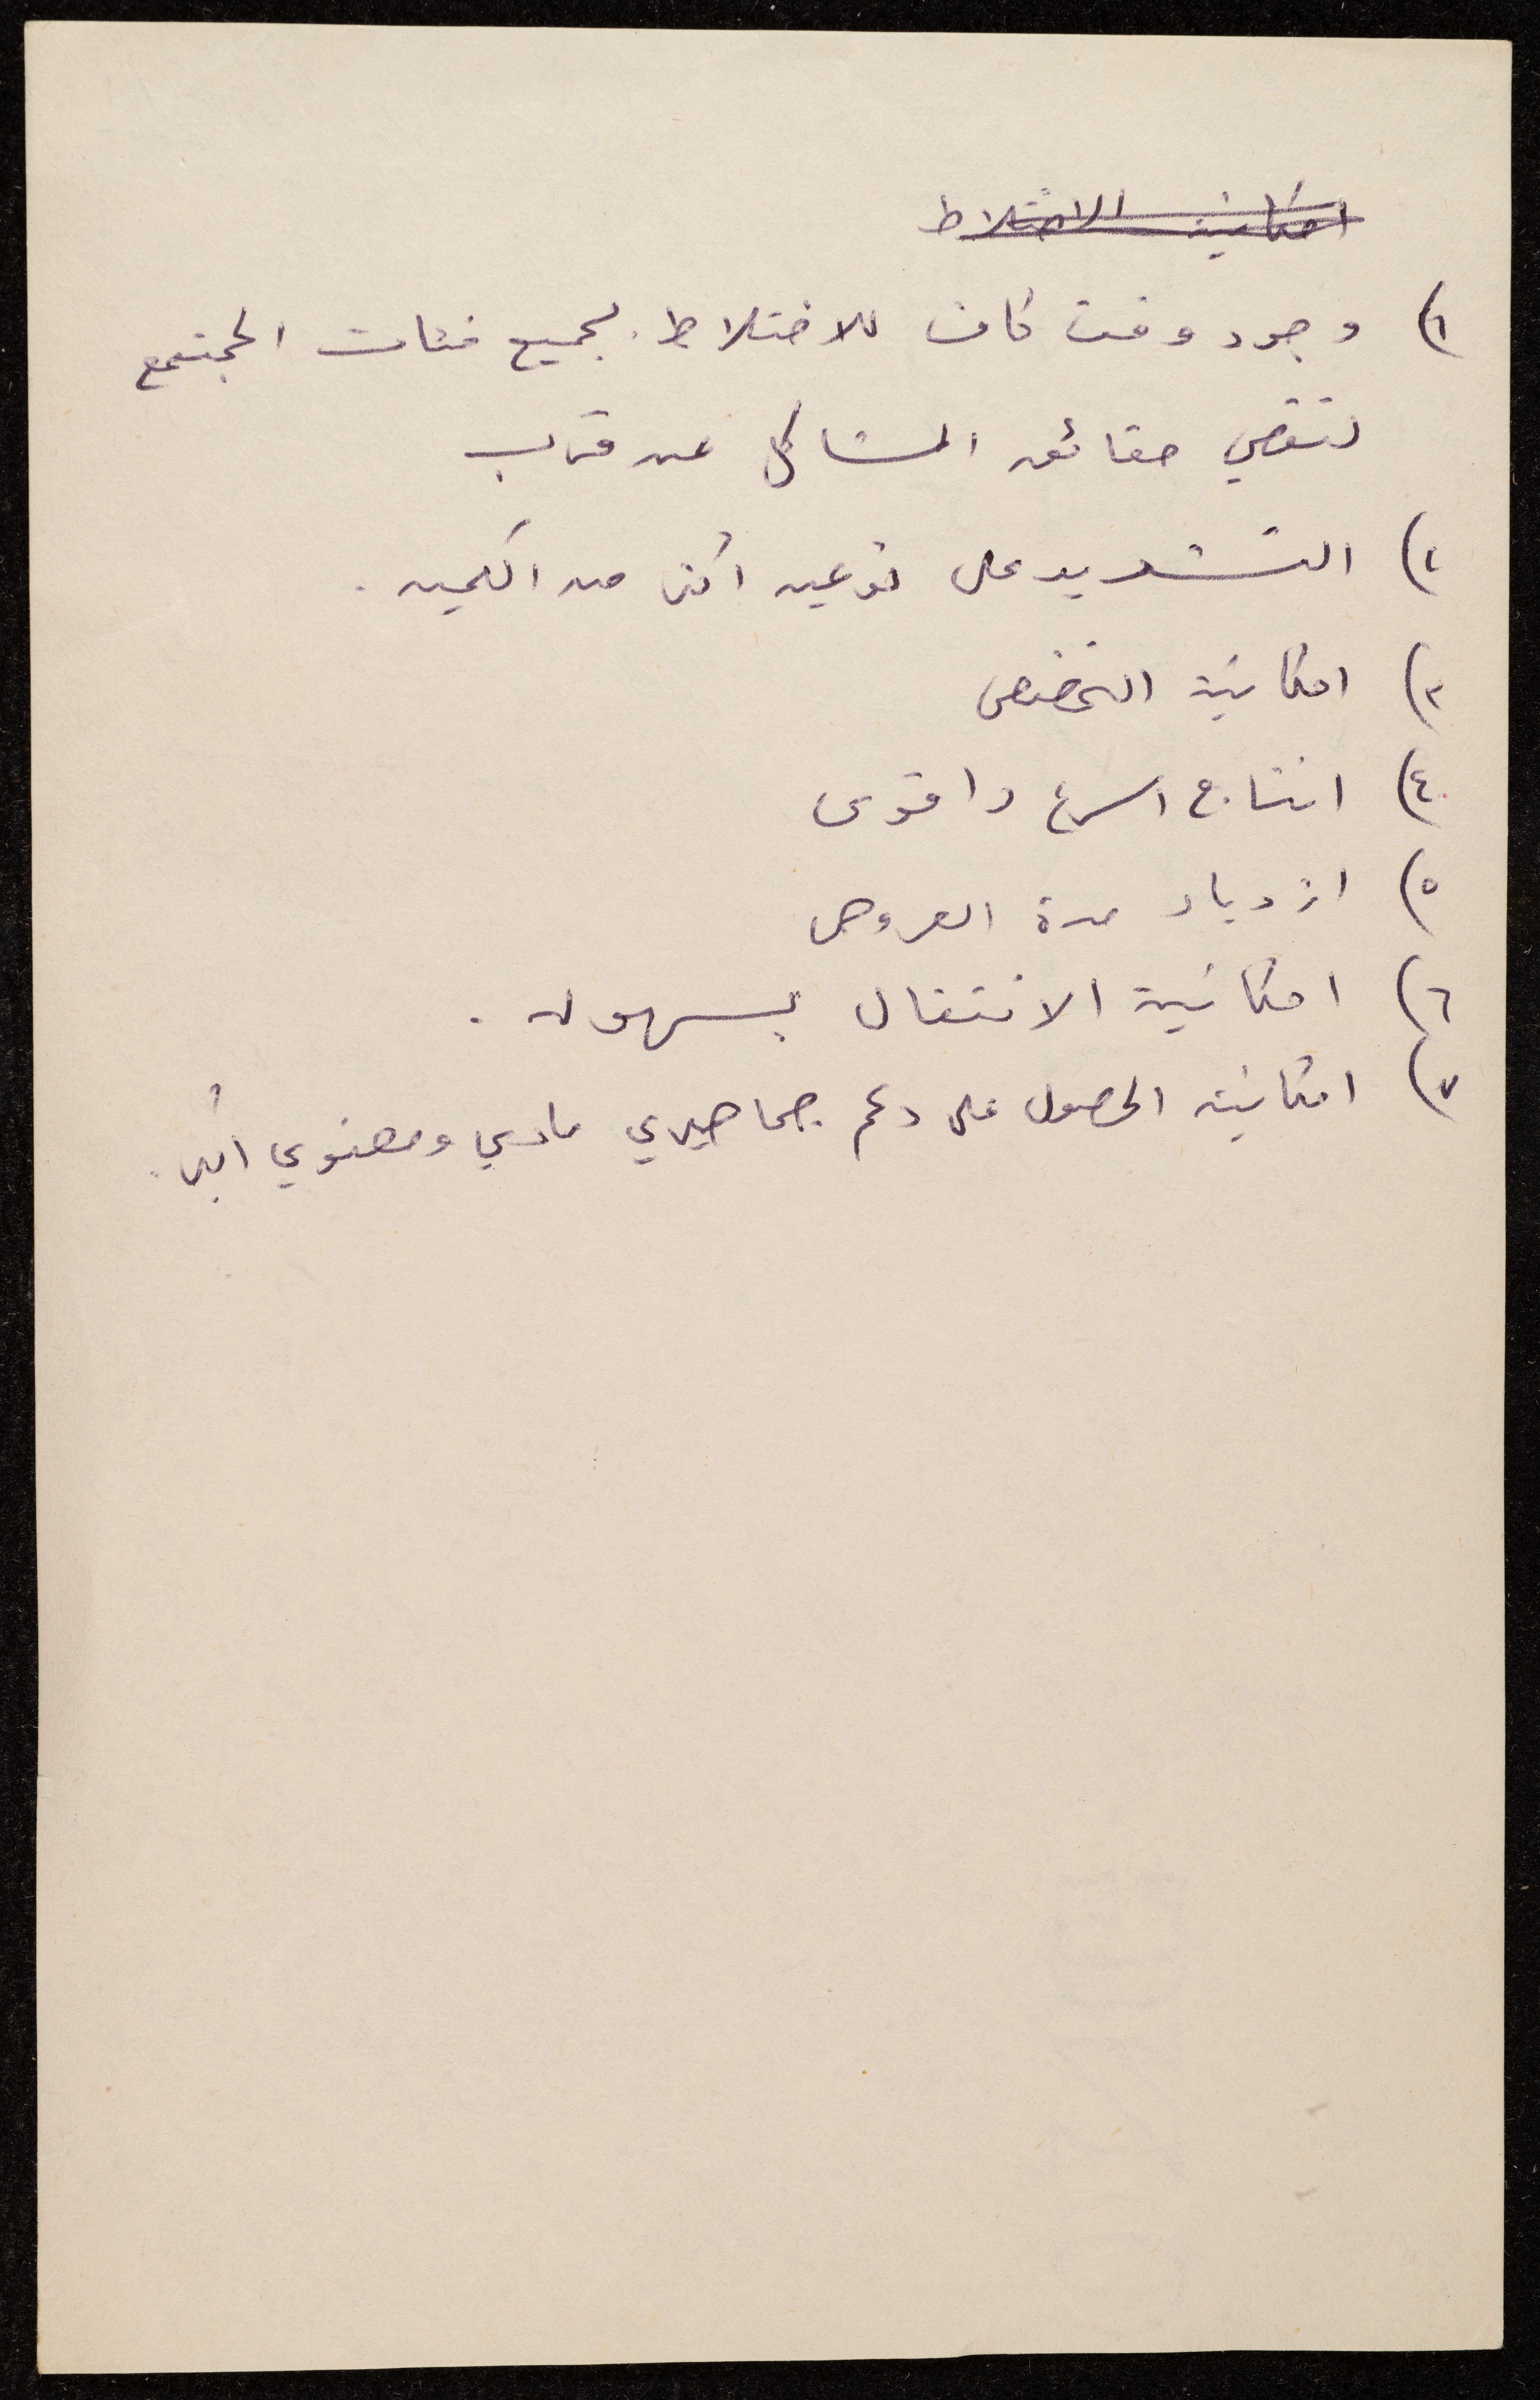 امكانية الاختلاط
١) وجود وقت كاف للاختلاط بجميع فئات المجتمع
لتقصي حقائق المشاكل عن قرب
٢) التشديد على نوعيه أكثر من الكميه .
٣) امكانية التخصص
٤) انتاج اسرع واقوى
٥) ازدياد مدة العروض
٦) امكانية الانتقال بسهوله .
٧) امكانية الحصول على دعم جماهيري مادي ومعنوي اكبر .